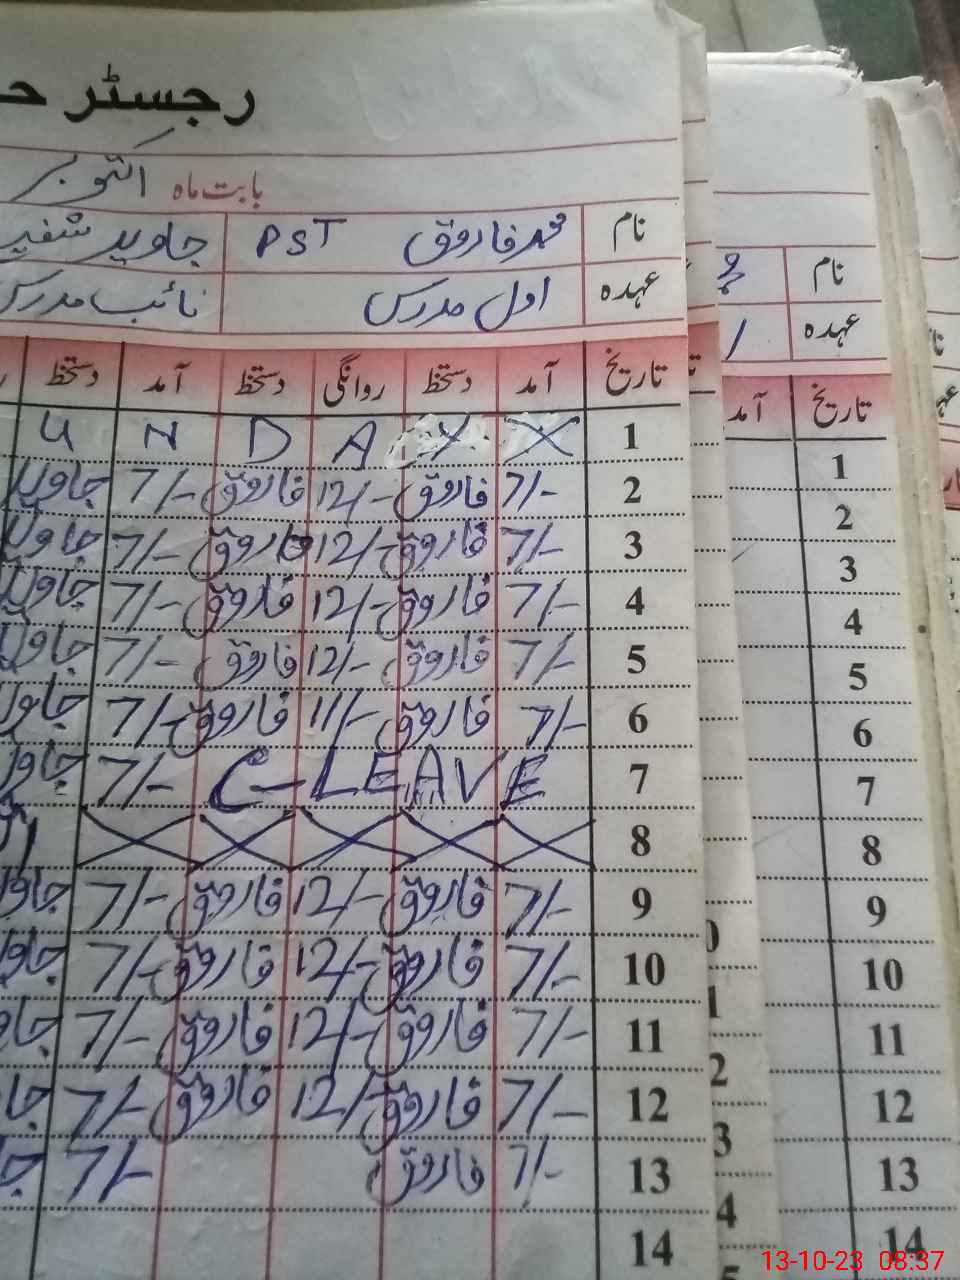 رجسٹر
بابت ماہ اکتوبر
نام محمد فاروق PST جاوید
عہدہ اول مدرس نائب مدرس
تاریخ آمد دستخط روانگی دستخط آمد دستخط
1 X X A D N U
2 7/- فاروق 12/- فاروق 7/- جاوید
3 7/- فاروق 12/- فاروق 7/- جاوید
4 7/- فاروق 12/- فاروق 7/- جاوید
5 7/- فاروق 12/- فاروق 7/- جاوید
6 7/- فاروق 11/- فاروق 7/- جاوید
7 C-LEAVE 7/-
8
9 7/- فاروق 12/- فاروق 7/-
10 7/- فاروق 12/- فاروق 7/-
11 7/- فاروق 12/- فاروق 7/-
12 7/- فاروق 12/- فاروق 7/-
13 7/- فاروق 7/-
14
نام
عہدہ
تاریخ آمد
1
2
3
4
5
6
7
8
9
10
11
12
13
14
13-10-23 08:37